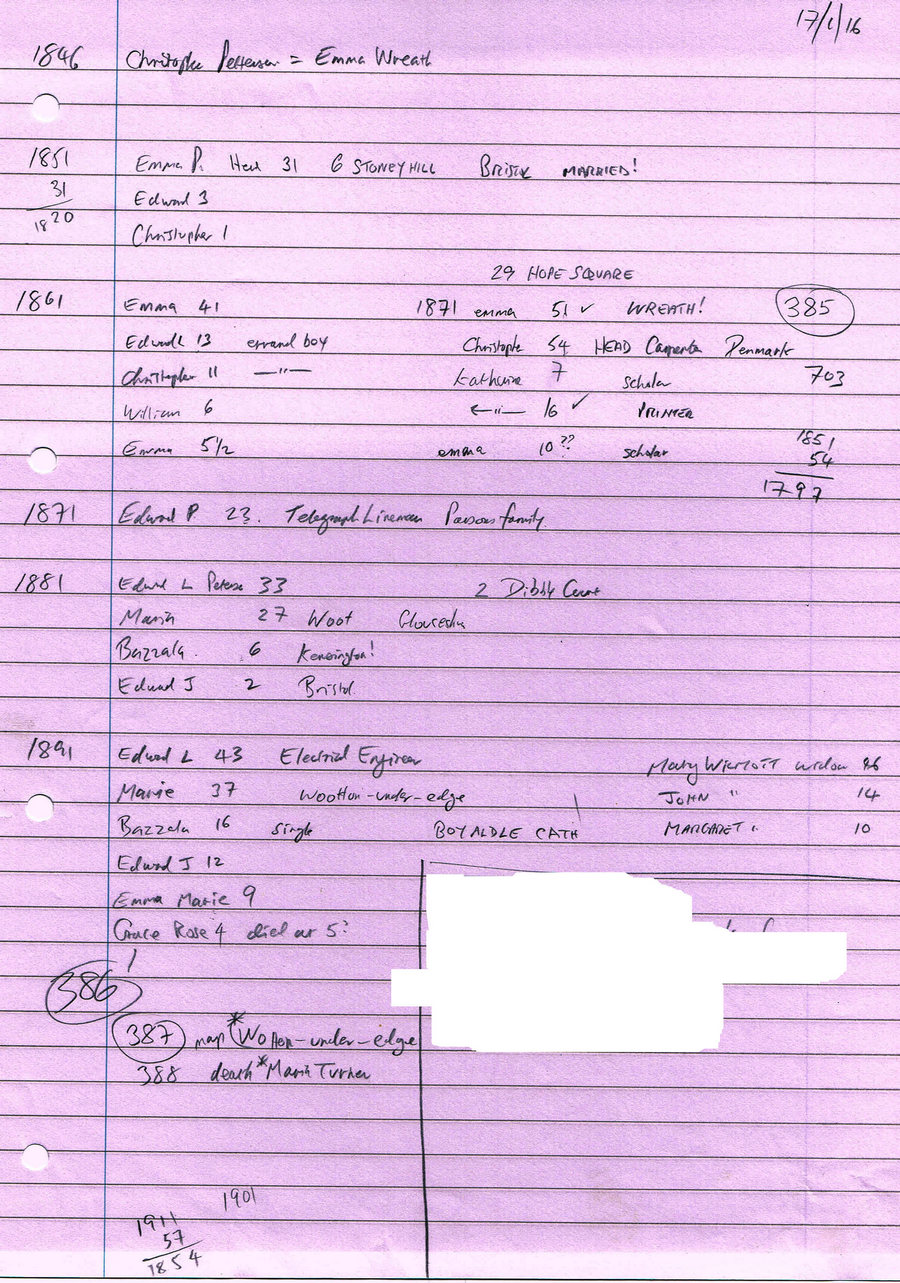 17/1/16
1846 Christopher Petterson = Emma Wreath
1851 Emma P. Head 31 6 STONEYHILL BRISTOL MARRIED!
31 Edward 3
1820 Christopher 1
29 HOPE SQUARE
1861 Emma 41 1871 emma 51 ✓ WREATH! 385
Edward L 13 errand boy Christopher 54 HEAD Carpenter Denmark
Christopher 11 —"— Katherine 7 scholar 703
William 6 ←"— 16 ✓ PRINTER
Emma 5 1/2 emma 10?? scholar 1851
54
1797
1871 Edward P 23. Telegraph Lineman Parsons family
1881 Edward L Peterse 33 2 Dibble Court
Maria 27 Woot Gloucester
Bazzala. 6 Kensington!
Edward J 2 Bristol.
1891 Edward L 43 Electrical Engineer Mary WILMOTT widow 86
Marie 37 Wootton-under-edge JOHN " 14
Bazzala 16 single BOYALDLE CATH MARGARET " 10
Edward J 12
Emma Marie 9
Grace Rose 4 died at 5?
386
387 map *Wotten-under-edge
388 death *Maria Turner
1901
1911
57
1854